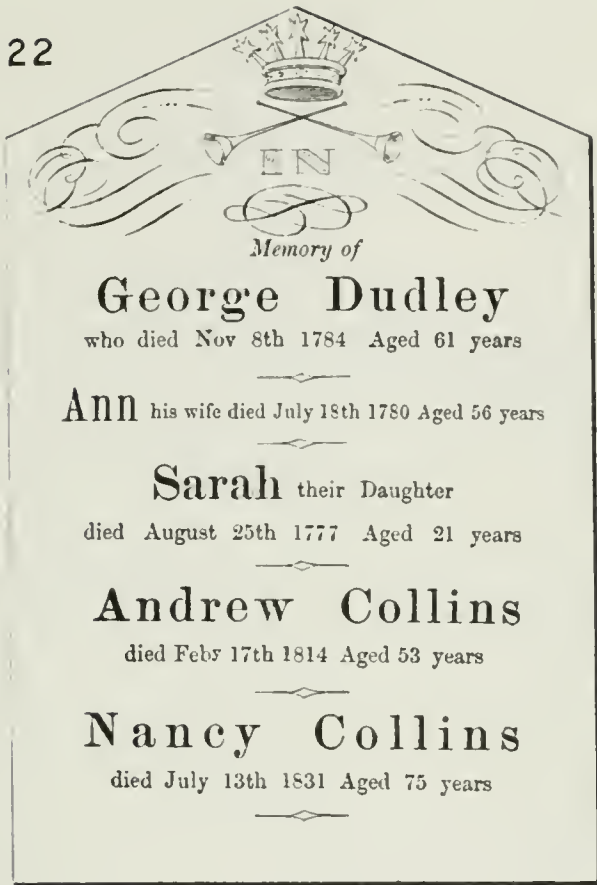 22
IN
Memory of
George Dudley
who died Nov 8th 1784 Aged 61 years
Ann his wife died July 18th 1780 Aged 56 years
Sarah their Daughter
died August 25th 1777 Aged 21 years
Andrew Collins
died Feby 17th 1814 Aged 53 years
Nancy Collins
died July 13th 1831 Aged 75 years